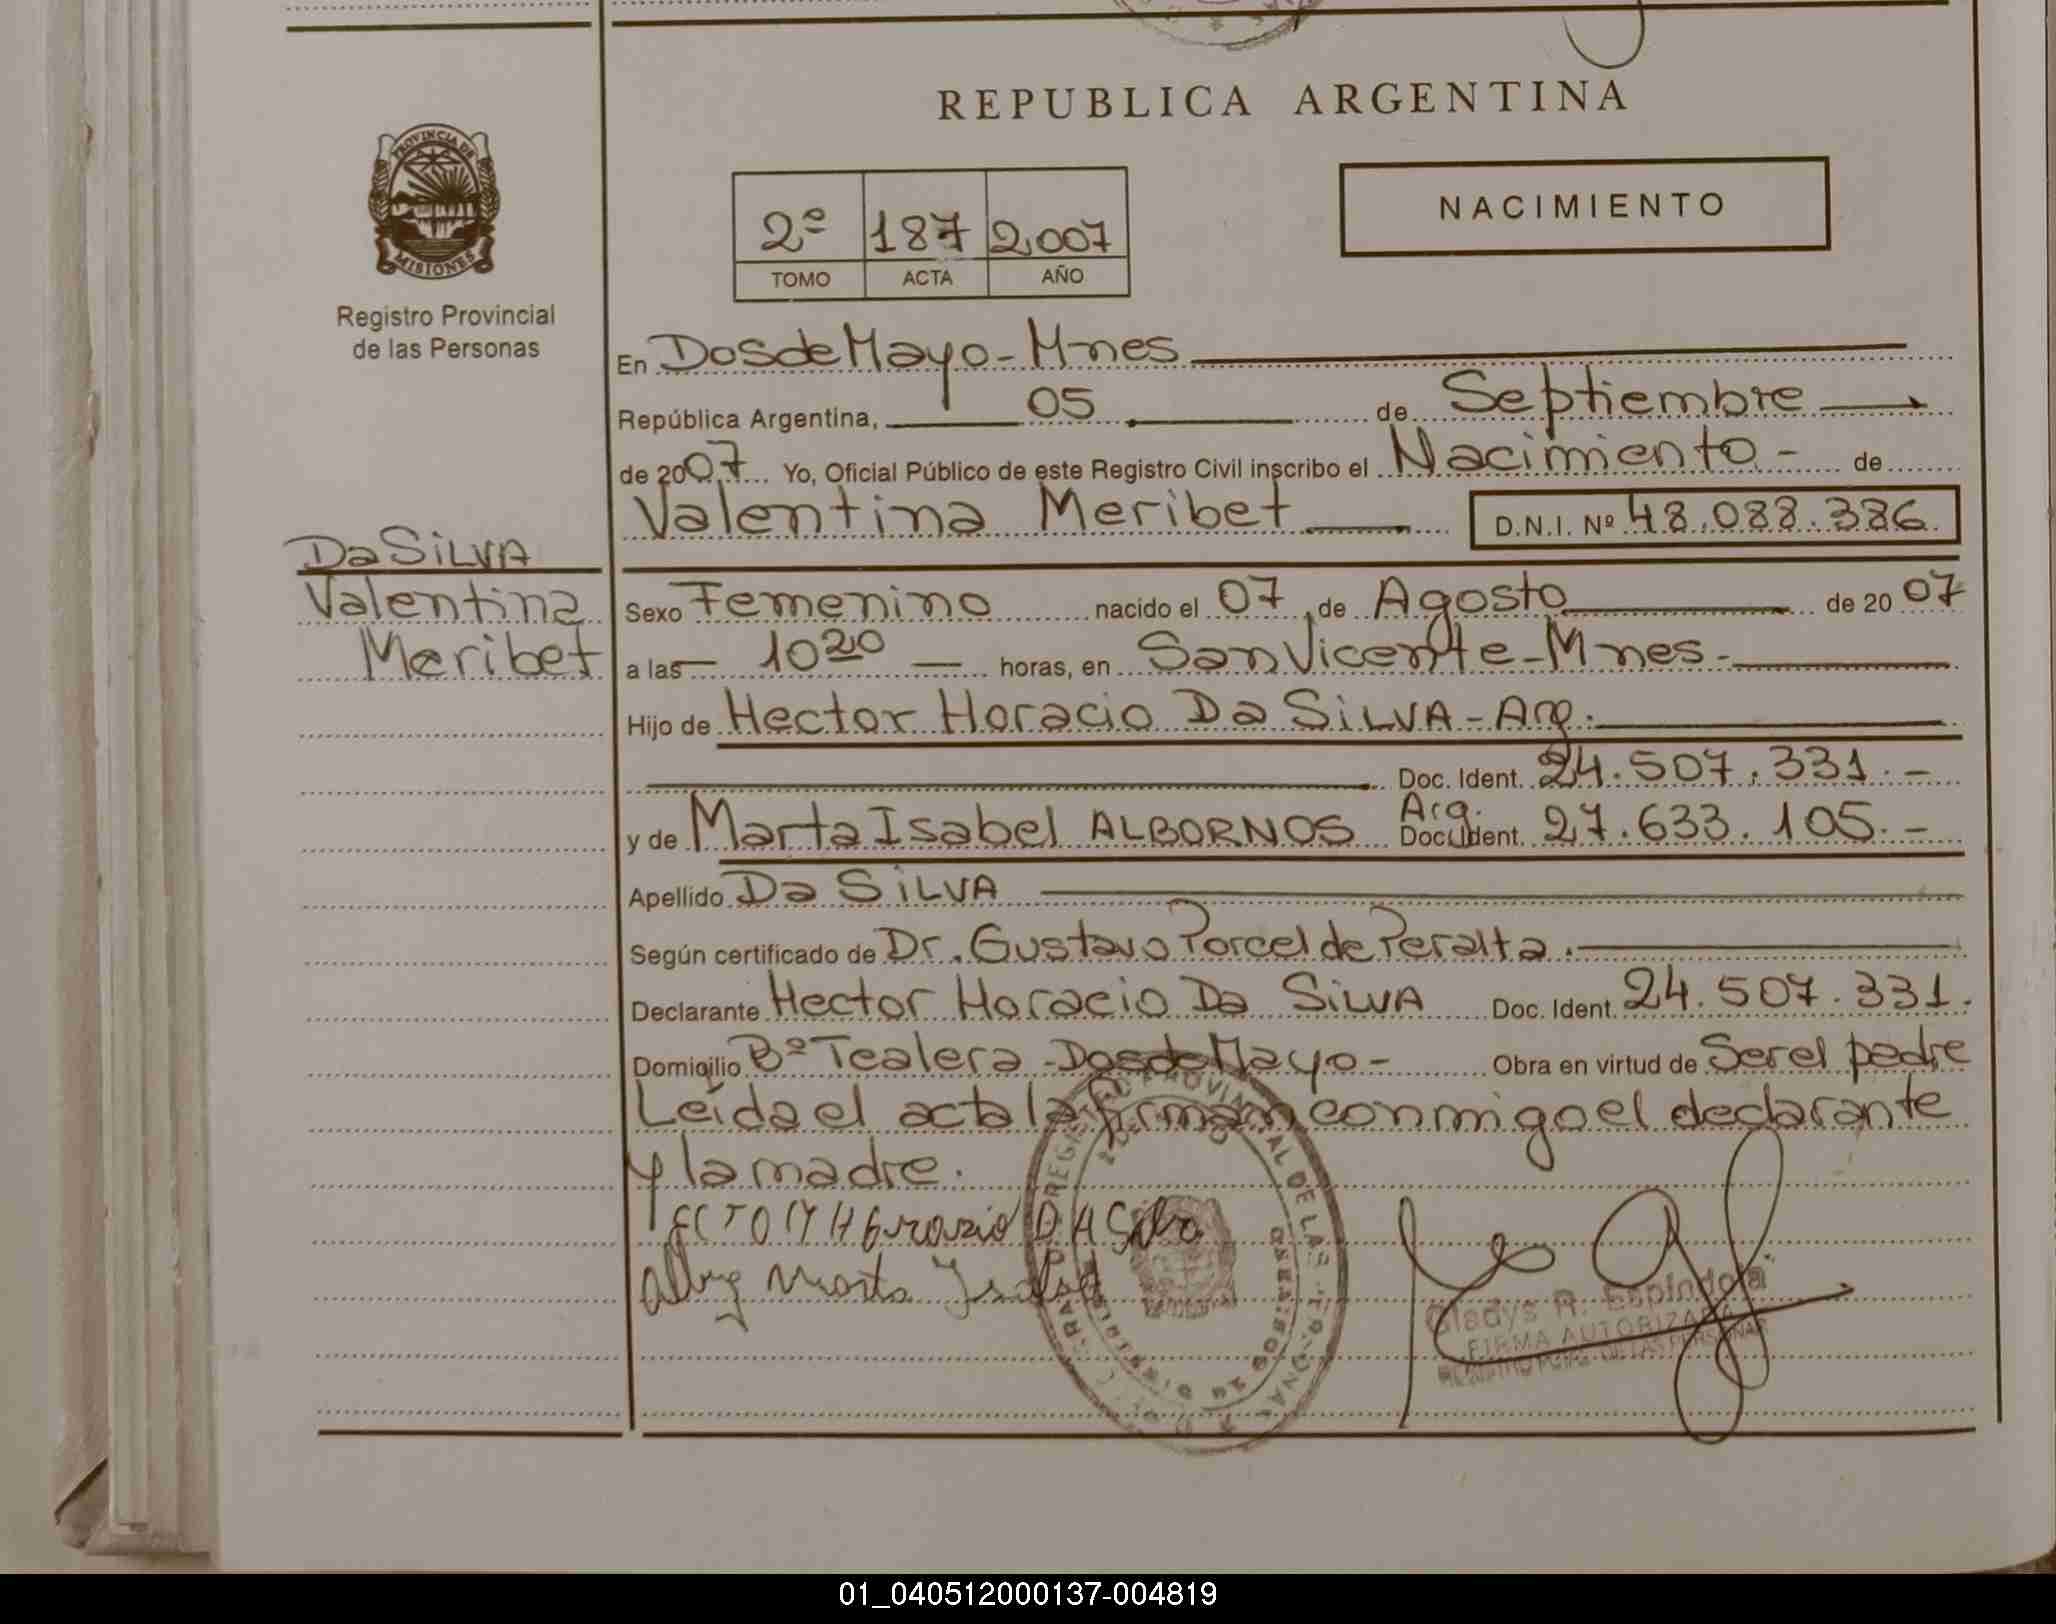 REPUBLICA ARGENTINA
PROVINCIA DE
MISIONES
Registro Provincial
de las Personas
2º 187 2007
TOMO ACTA AÑO
NACIMIENTO
En Dos de Mayo - Mnes
República Argentina, 05 de Septiembre
de 2007 Yo, Oficial Público de este Registro Civil inscribo el Nacimiento - de
Valentina Meribet D.N.I. Nº 48.088.386
Da SiLVA
Valentina
Meribet
Sexo Femenino nacido el 07 de Agosto de 2007
a las - 10 20 - horas, en San Vicente - Mnes -
Hijo de Hector Horacio Da SiLVA - Arg.
Doc. Ident. 24.507.331.-
y de Marta Isabel ALBORNOS Arg. Doc. Ident. 27.633.105.-
Apellido Da SiLVA
Según certificado de Dr. Gustavo Porcel de Peralta.
Declarante Hector Horacio Da SiLVA Doc. Ident. 24.507.331.
Domicilio Bº Tealera - Dos de Mayo - Obra en virtud de Ser el padre
Leída el acta la firman conmigo el declarante
y la madre.
DA Silva
Marta Isabel
Gladys R. Espindola
FIRMA AUTORIZADA
01_040512000137-004819